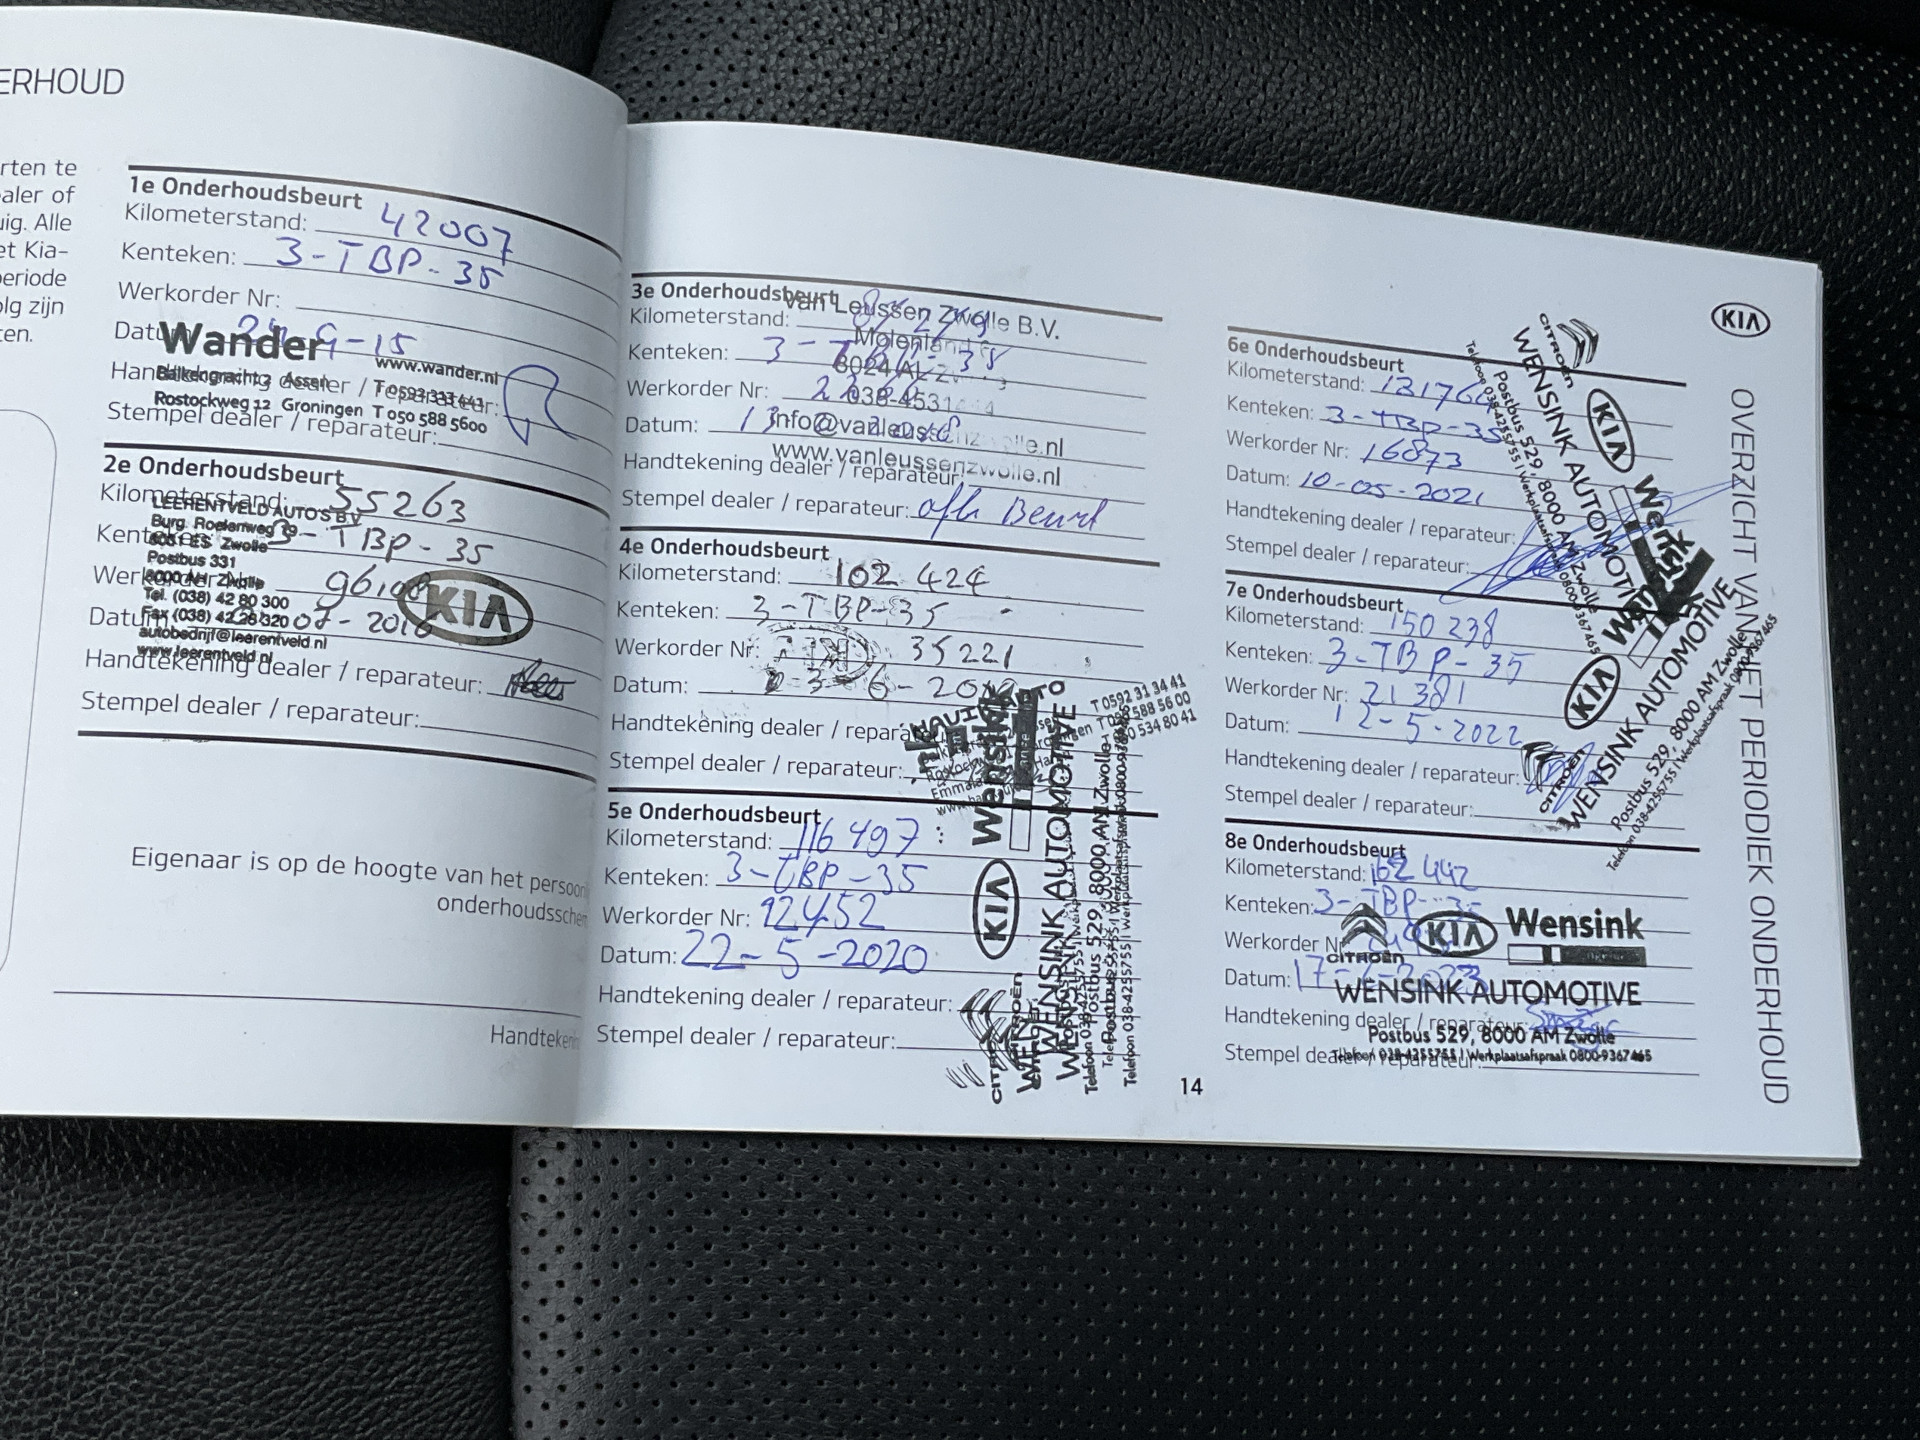 ERHOUD
rten te
aler of
uig. Alle
et Kia-
periode
olg zijn
ten.
1e Onderhoudsbeurt
Kilometerstand: 42007
Kenteken: 3-TBP-35
Werkorder Nr:
Datum: -15
Wander
www.wander.nl
Balkengracht 3 Assen T 0592 333 443
Rostockweg 12 Groningen T 050 588 5600
Handtekening dealer / reparateur:
Stempel dealer / reparateur:
2e Onderhoudsbeurt
Kilometerstand: 55263
Kenteken: 3-TBP-35
Werkorder Nr:
Datum: 2016
Handtekening dealer / reparateur:
Stempel dealer / reparateur:
LEERENTVELD AUTO'S B.V.
Burg. Roelenweg 39
Zwolle
Postbus 331
8000 AH Zwolle
Tel. (038) 42 80 300
Fax (038) 42 26 320
autobedrijf@leerentveld.nl
www.leerentveld.nl
KIA
Eigenaar is op de hoogte van het persoon
onderhoudssche
Handteken
3e Onderhoudsbeurt
Kilometerstand:
Kenteken:
Werkorder Nr:
Datum:
Handtekening dealer / reparateur:
Stempel dealer / reparateur: Beurt
Van Leussen Zwolle B.V.
info@vanleussenzwolle.nl
www.vanleussenzwolle.nl
4e Onderhoudsbeurt
Kilometerstand: 102 424
Kenteken: 3-TBP-35
Werkorder Nr: 35221
Datum:
Handtekening dealer / reparateur:
Stempel dealer / reparateur:
T 0592 31 34 41
5e Onderhoudsbeurt
Kilometerstand: 116 497
Kenteken: 3-TBP-35
Werkorder Nr: 12452
Datum: 22-5-2020
Handtekening dealer / reparateur:
Stempel dealer / reparateur:
Wensink
KIA
WENSINK AUTOMOTIVE
Postbus 529, 8000 AM Zwolle
14
6e Onderhoudsbeurt
Kilometerstand: 131764
Kenteken: 3-TBP-35
Werkorder Nr: 16873
Datum: 10-05-2021
Handtekening dealer / reparateur:
Stempel dealer / reparateur:
CITROËN
KIA
WENSINK AUTOMOTIVE
Postbus 529, 8000 AM Zwolle
7e Onderhoudsbeurt
Kilometerstand: 150238
Kenteken: 3-TBP-35
Werkorder Nr: 21381
Datum: 12-5-2022
Handtekening dealer / reparateur:
Stempel dealer / reparateur:
CITROËN
KIA
WENSINK AUTOMOTIVE
Postbus 529, 8000 AM Zwolle
Telefoon 038-4255755 | Werkplaatsafspraak 0800-9367465
8e Onderhoudsbeurt
Kilometerstand: 162 442
Kenteken: 3-TBP-35
Werkorder Nr:
Datum: 17-
Handtekening dealer / reparateur:
Stempel dealer / reparateur:
CITROËN
KIA
Wensink
WENSINK AUTOMOTIVE
Postbus 529, 8000 AM Zwolle
Telefoon 038-4255755 | Werkplaatsafspraak 0800-9367465
KIA
OVERZICHT VAN HET PERIODIEK ONDERHOUD